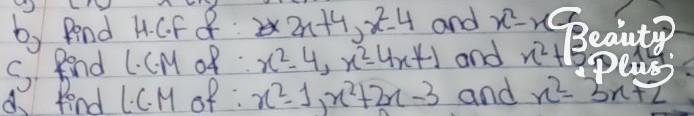 b) find H.C.F of : 2x+4, x²-4 and x²-x
c) find L.C.M of : x²-4, x²-4x+1 and x²+
d) find L.C.M of : x²-1, x²+2x-3 and x²-3x+2
Beauty
Plus